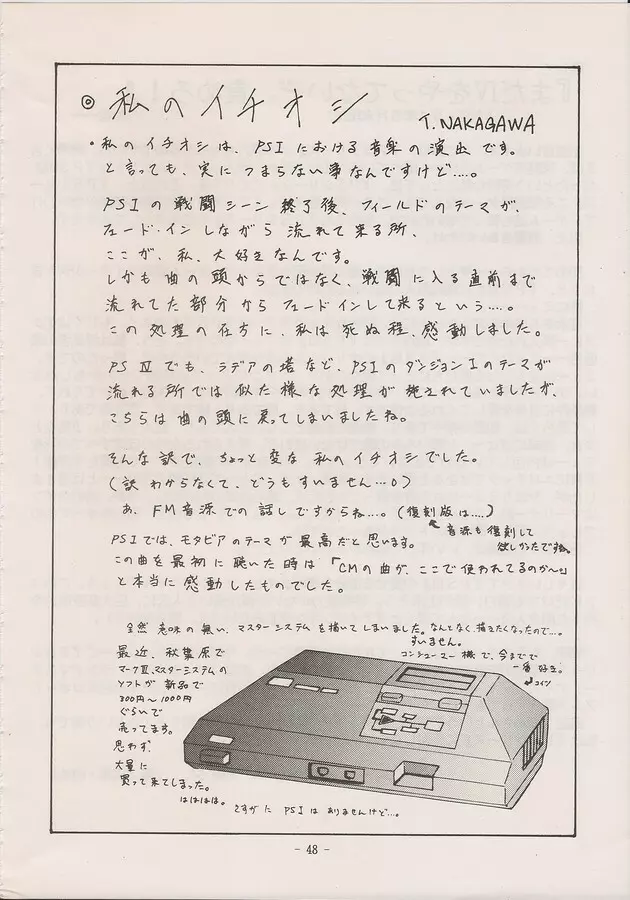 ◎ 私のイチオシ
T. NAKAGAWA
・私のイチオシは、PSIにおける音楽の演出です。
と言っても、実につまらない事なんですけど‥‥。
PSIの戦闘シーン終了後、フィールドのテーマが、
フェード・インしながら流れて来る所、
ここが、私、大好きなんです。
しかも曲の頭からではなく、戦闘に入る直前まで
流れてた部分からフェードインして来るという‥‥。
この処理の在方に、私は死ぬ程、感動しました。
PSⅣでも、ラデアの塔など、PSIのダンジョンIのテーマが
流れる所では似た様な処理が施されていましたが、
こちらは曲の頭に戻ってしまいましたね。
そんな訳で、ちょっと変な私のイチオシでした。
(訳わからなくて、どうもすいません…。)
あ、FM音源での話しですからね…。(復刻版は‥‥)
音源も復刻して
欲しかったですね。
PSIでは、モタビアのテーマが最高だと思います。
この曲を最初に聴いた時は「CMの曲が、ここで使われてるのか〜。」
と本当に感動したものでした。
全然意味の無い、マスターシステムを描いてしまいました。なんとなく、描きたくなったので…。
すいません。
コンシューマー機で、今までで
一番好き。
↲コイツ
最近、秋葉原で
マークⅢ、マスターシステムの
ソフトが新品で
300円〜1000円
ぐらいで
売ってます。
思わず、
大量に
買って来てしまった。
ははははは。
さすがにPSIはありませんけど…。
- 48 -